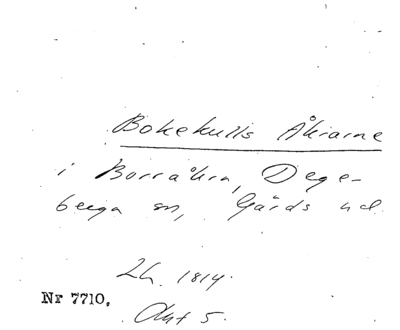 Bokekulls Åkrarne
i Borråkra, Dege-
berga sn, Gärds hd
Lh. 1814.
Nr 7710.
Akt 5.